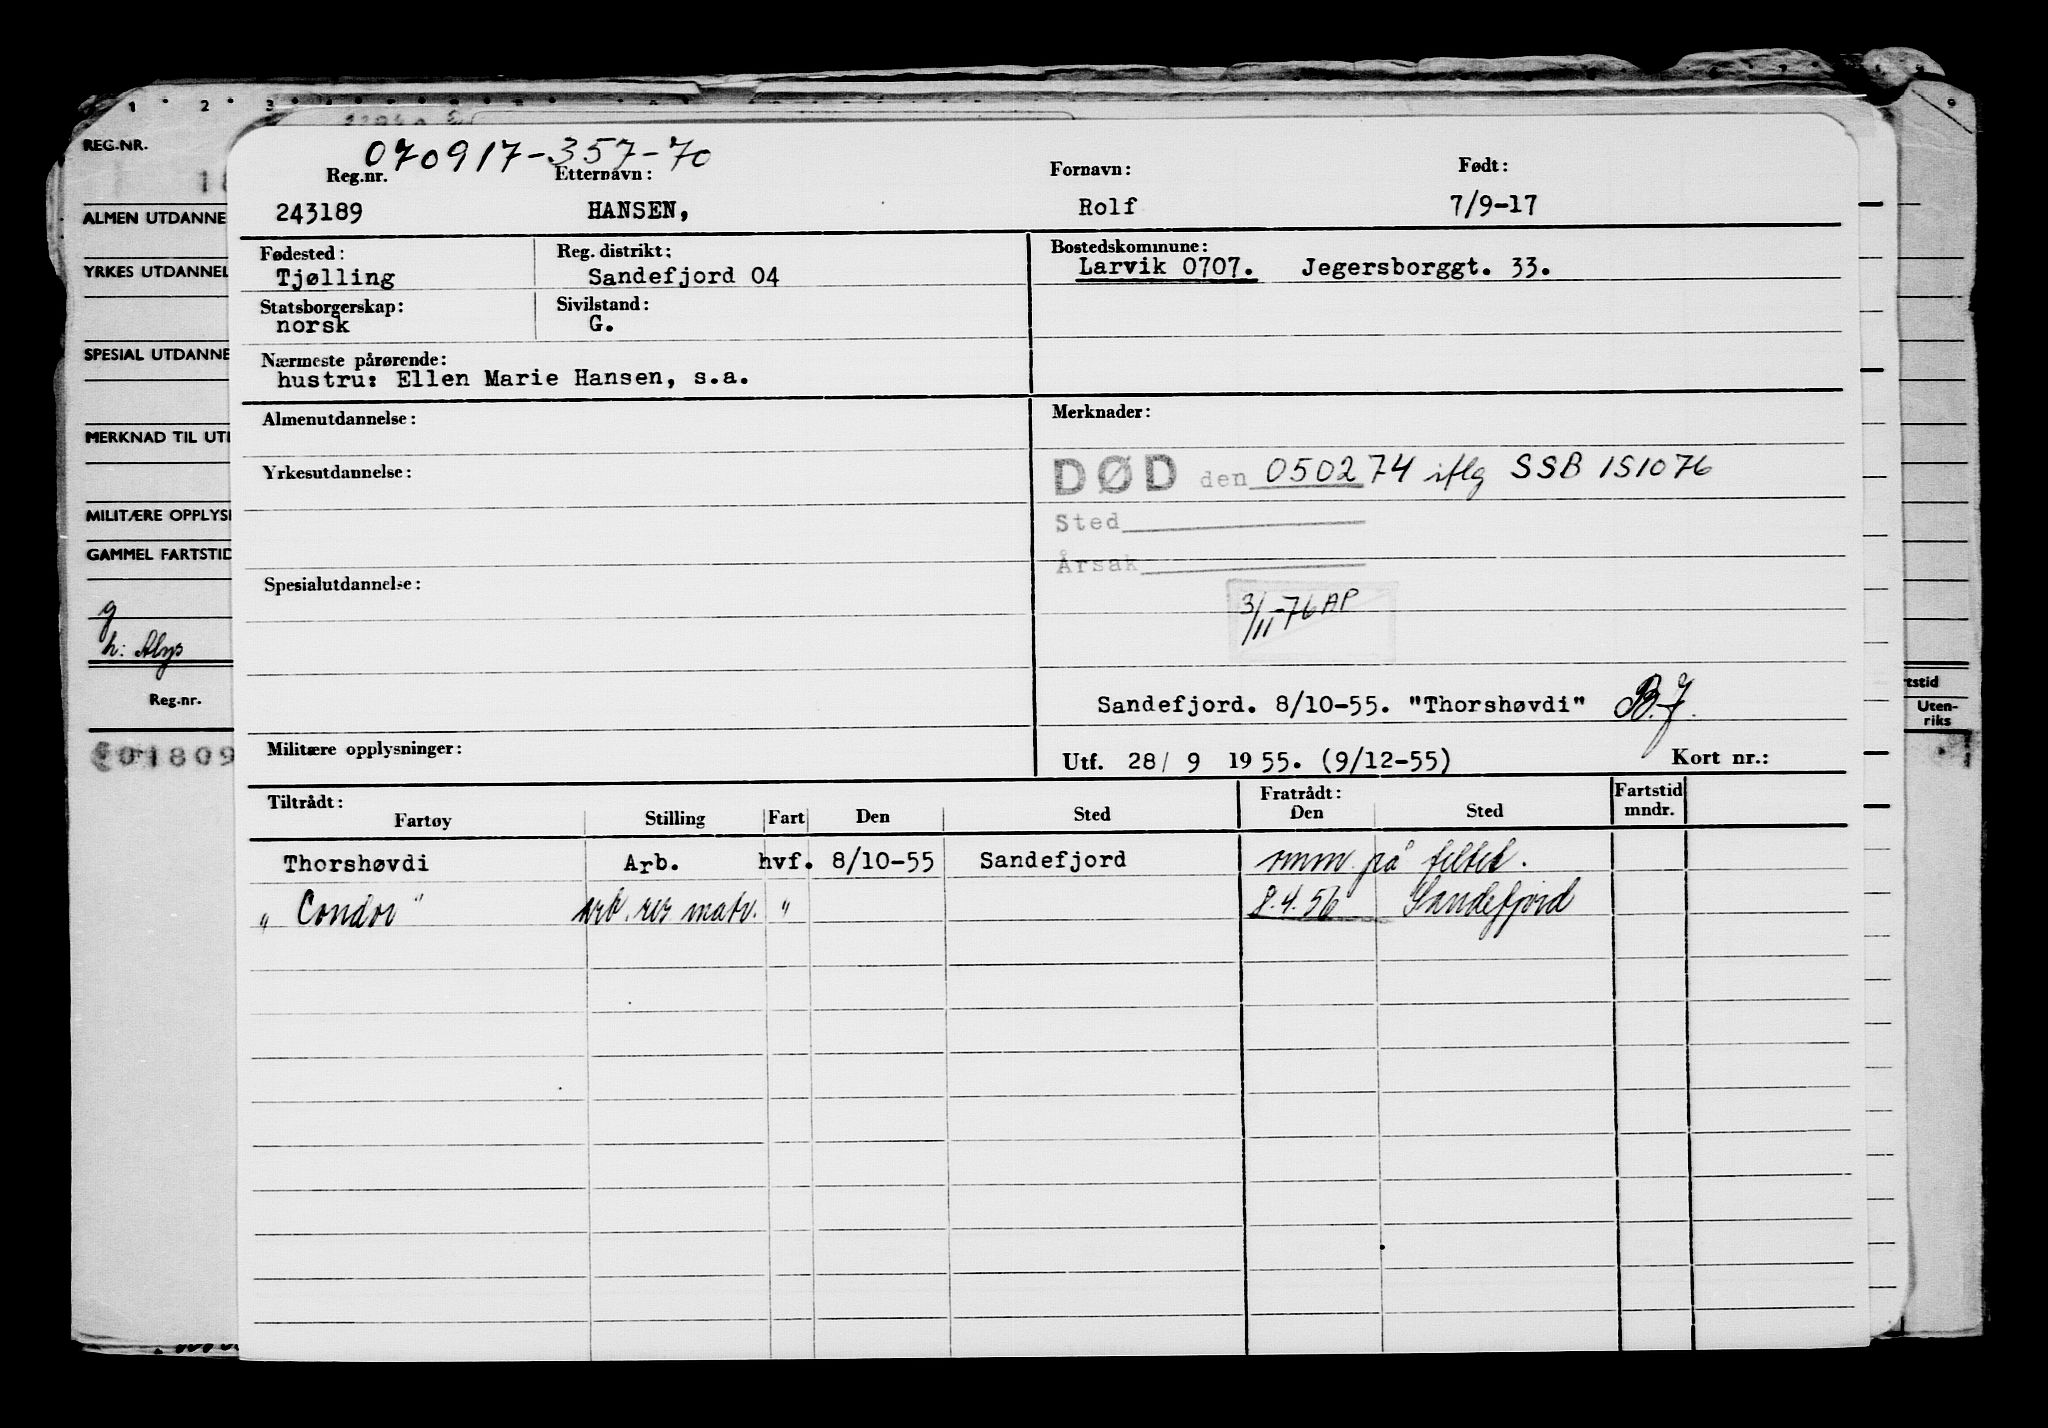 1 2 3
REG-NR.
ALMEN UTDANNE
YRKES UTDANNEL
SPESIAL UTDANNE
MERKNAD TIL UTD
MILITÆRE OPPLYSN
GAMMEL FARTSTID
g
h: Alys
Reg.nr.
01809
rtstid
Uten-
riks
070917-357-70
Reg.nr. Etternavn: Fornavn: Født:
243189 HANSEN, Rolf 7/9-17
Fødested: Reg. distrikt: Bostedskommune:
Tjølling Sandefjord 04 Larvik 0707. Jegersborggt. 33.
Statsborgerskap: Sivilstand:
norsk G.
Nærmeste pårørende:
hustru: Ellen Marie Hansen, s.a.
Almenutdannelse: Merknader:
Yrkesutdannelse:
DØD den 050274 iflg SSB 151076
Sted
Årsak
Spesialutdannelse:
3/11-76 AP
Sandefjord. 8/10-55. "Thorshøvdi" B.J.
Militære opplysninger:
Utf. 28/ 9 1955. (9/12-55) Kort nr.:
Tiltrådt: Fratrådt: Fartstid
Fartøy Stilling Fart Den Sted Den Sted mndr.
Thorshøvdi Arb. hvf. 8/10-55 Sandefjord mm på feltet.
"Condor" arb. res matr. " 8.4.56 Sandefjord